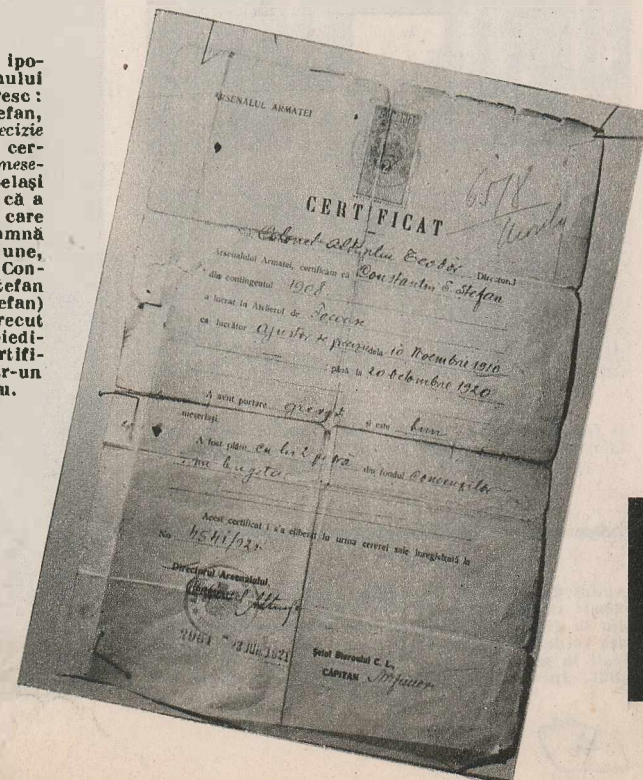 ipo-
nului
resc :
efan,
ecizie
cer-
mese-
elaşi
că a
care
amnă
une,
Con-
tefan
efan)
recut
iedi-
rtifi-
r-un
u.
ARSENALUL ARMATEI
6578
CERTIFICAT
Colonel Teodor Directorul
Arsenalului Armatei, certificăm că Constantin S. Stefan
din contingentul 1908
a lucrat în Atelierul de
ca lucrător Ajustor de precizie dela 10 Noembrie 1910
până la 20 Octombrie 1920
A avut purtare și este bun
meseriaş.
A fost plătit cu lei 2 pe oră din fondul
Acest certificat i s'a eliberat în urma cererei sale înregistrată la
No 4541/921
Directorul Arsenalului,
Colonel
2964 1921
Şeful Biroului C. L.,
CĂPITAN